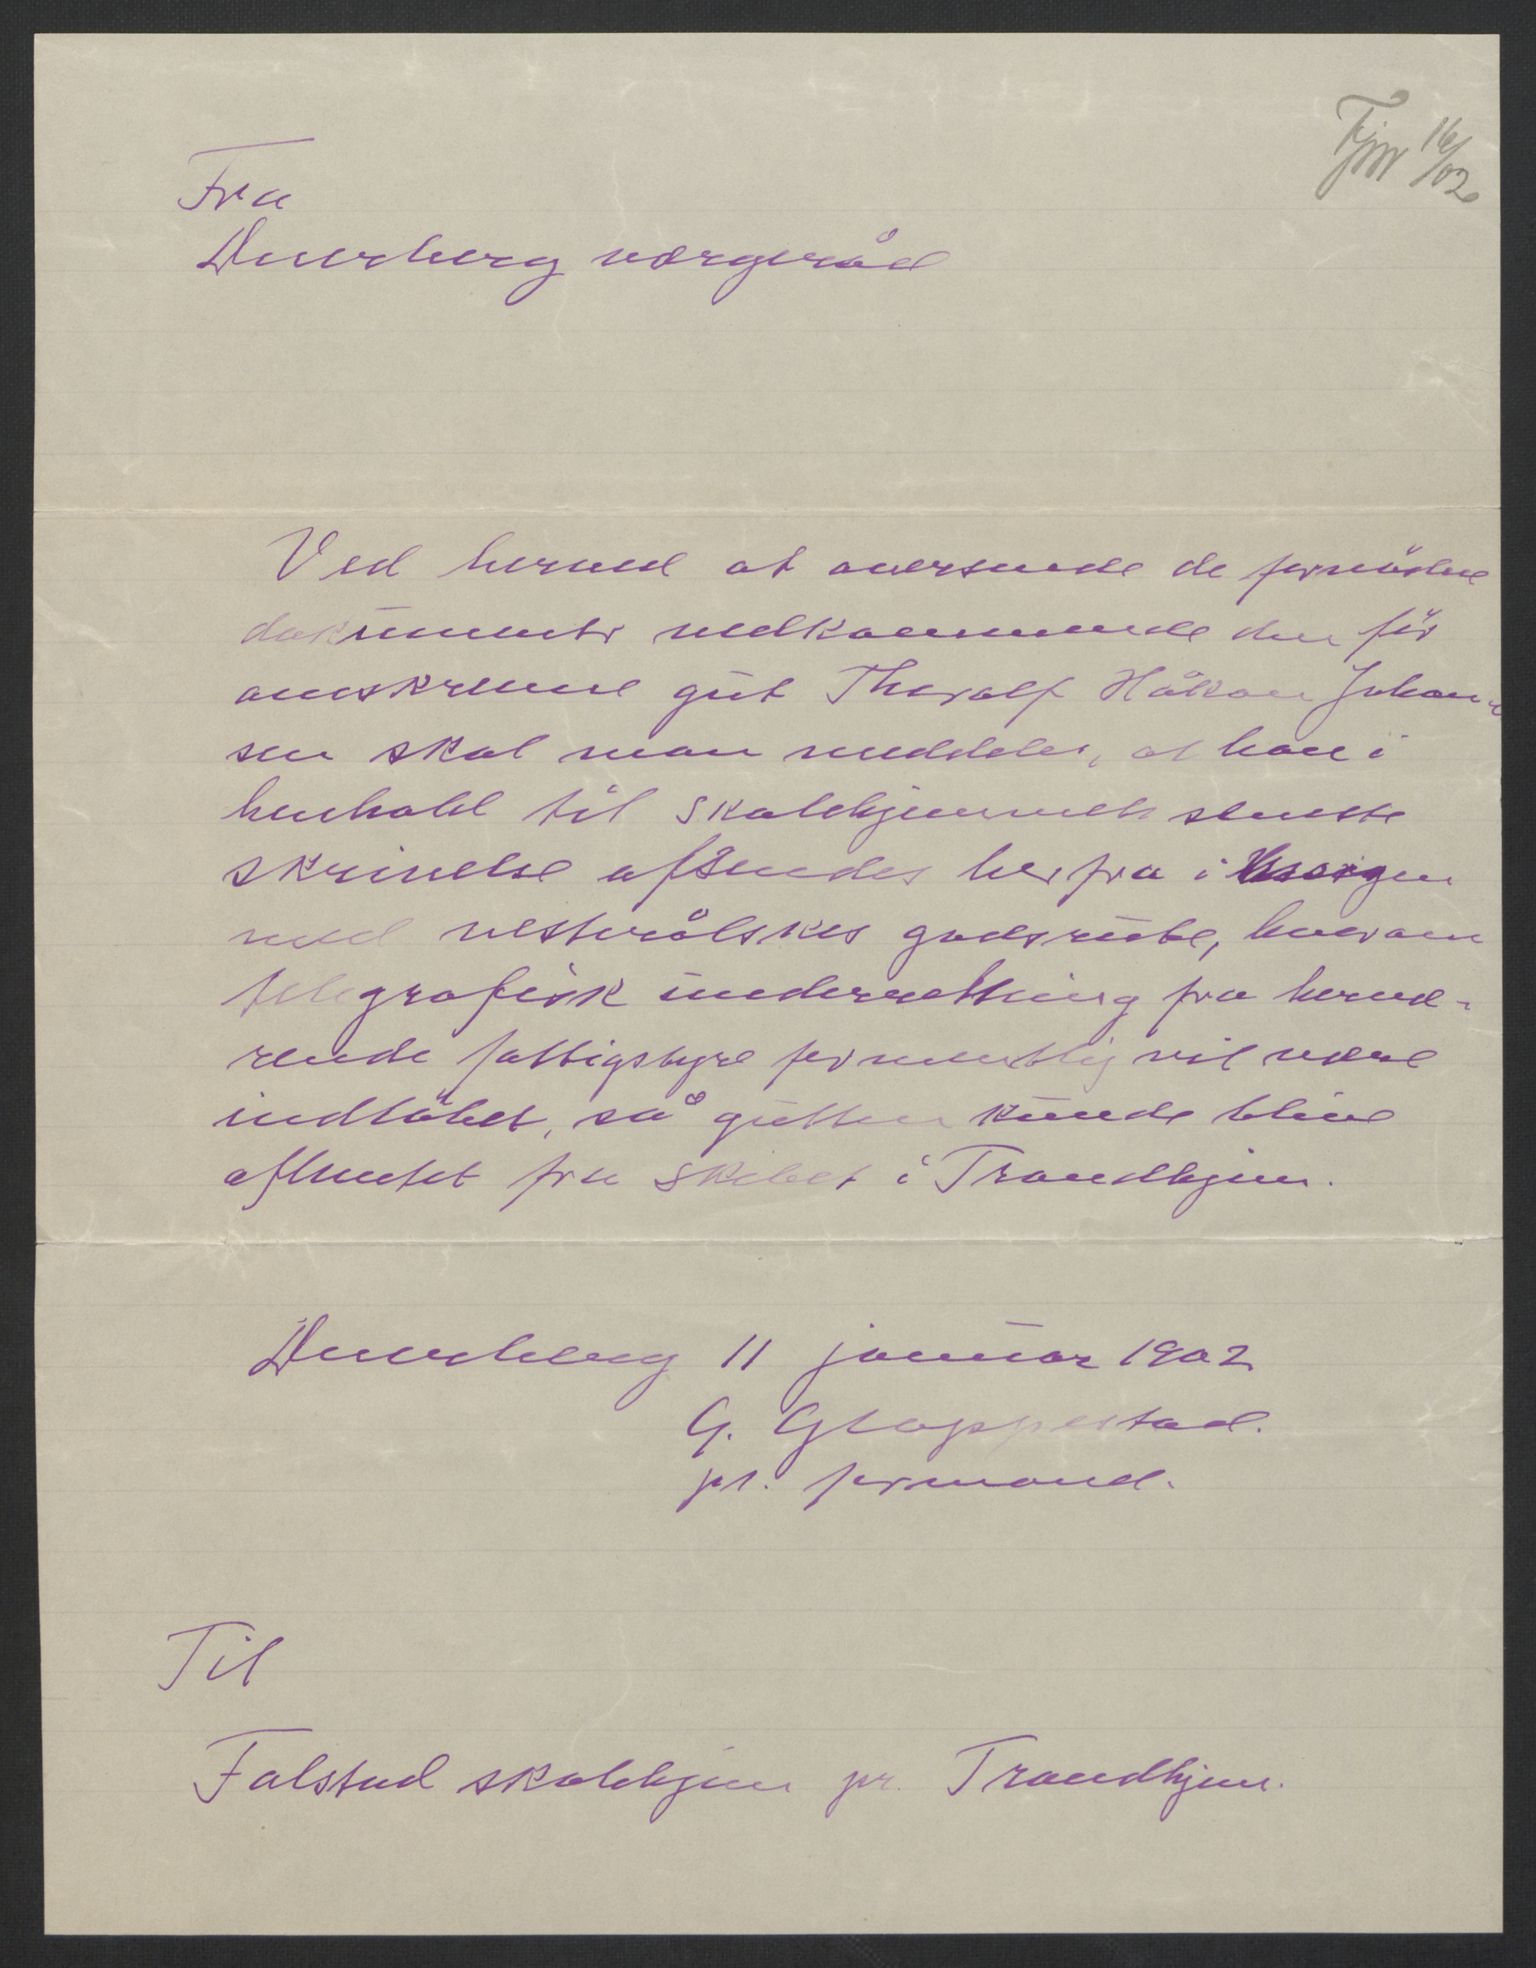 16/02
Fra
Dverberg værgeråd
Ved herved at oversende de fornödne
dokumenter vedkommende den för
omskrevne gut Thoralf Håkon Johan-
sen skal man meddele, at han i
henhold til skolehjemmets seneste
skrivelse afsendes herfra i morgen
med vesterålskes godsrute, hvorom
telegrafisk underretning fra hervæ-
rende fattigstyre formentlig vil være
indlöbet, så gutten kunde blive
afhentet fra skibet i Trondhjem.
Dverberg 11 januar 1902
G. Gloppestad.
pt. formand.
Til
Falstad skolehjem pr. Trondhjem.